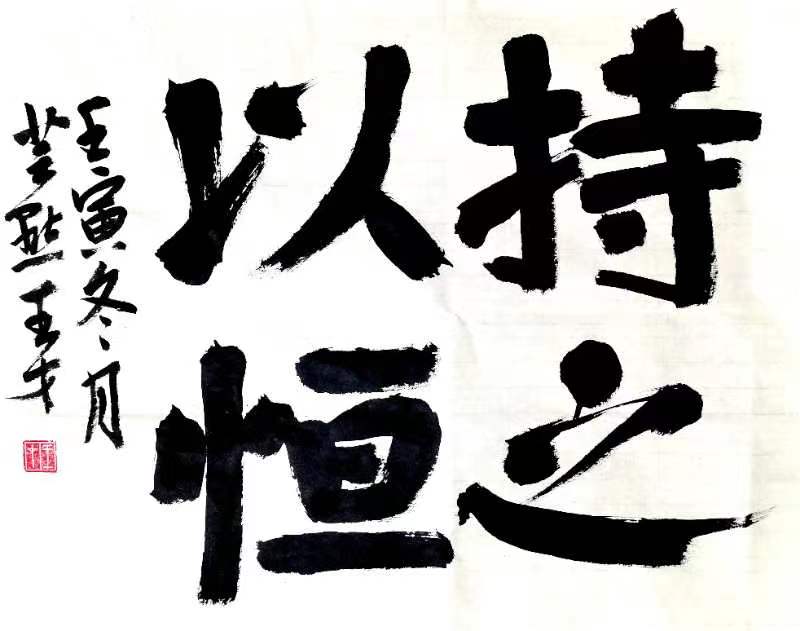 持之
以恒
壬寅冬月
王才